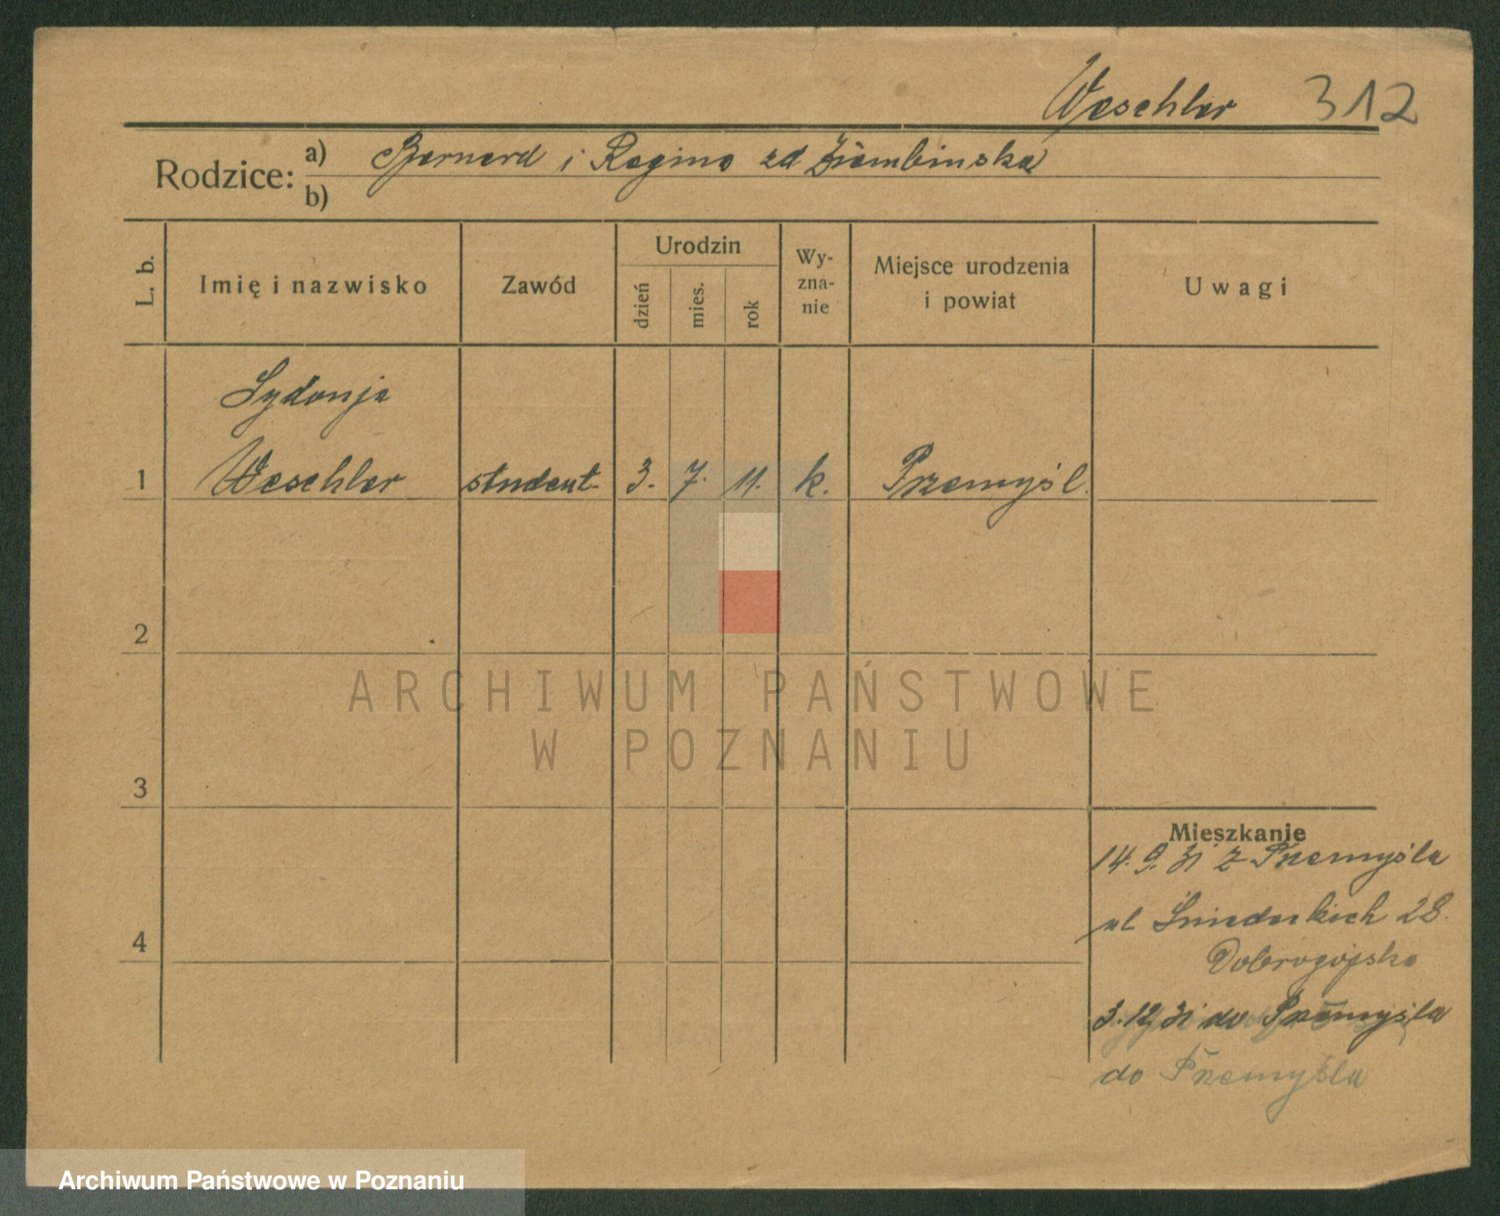 Weschler 312
Rodzice: a) Bernard i Regina zd Ziembinska
b)
L. b. Imię i nazwisko Zawód Urodzin dzień mies. rok Wy-zna-nie Miejsce urodzenia i powiat Uwagi
Sydonja
1 Weschler student 3. 7. 11. k. Przemyśl.
2
ARCHIWUM PAŃSTWOWE
W POZNANIU
3
Mieszkanie
14. 9. 31 z Przemyśla
ul Śniadeckich 28.
4
Dobrogojska
3. 12 31 do Przemyśla
do Przemyśla
Archiwum Państwowe w Poznaniu